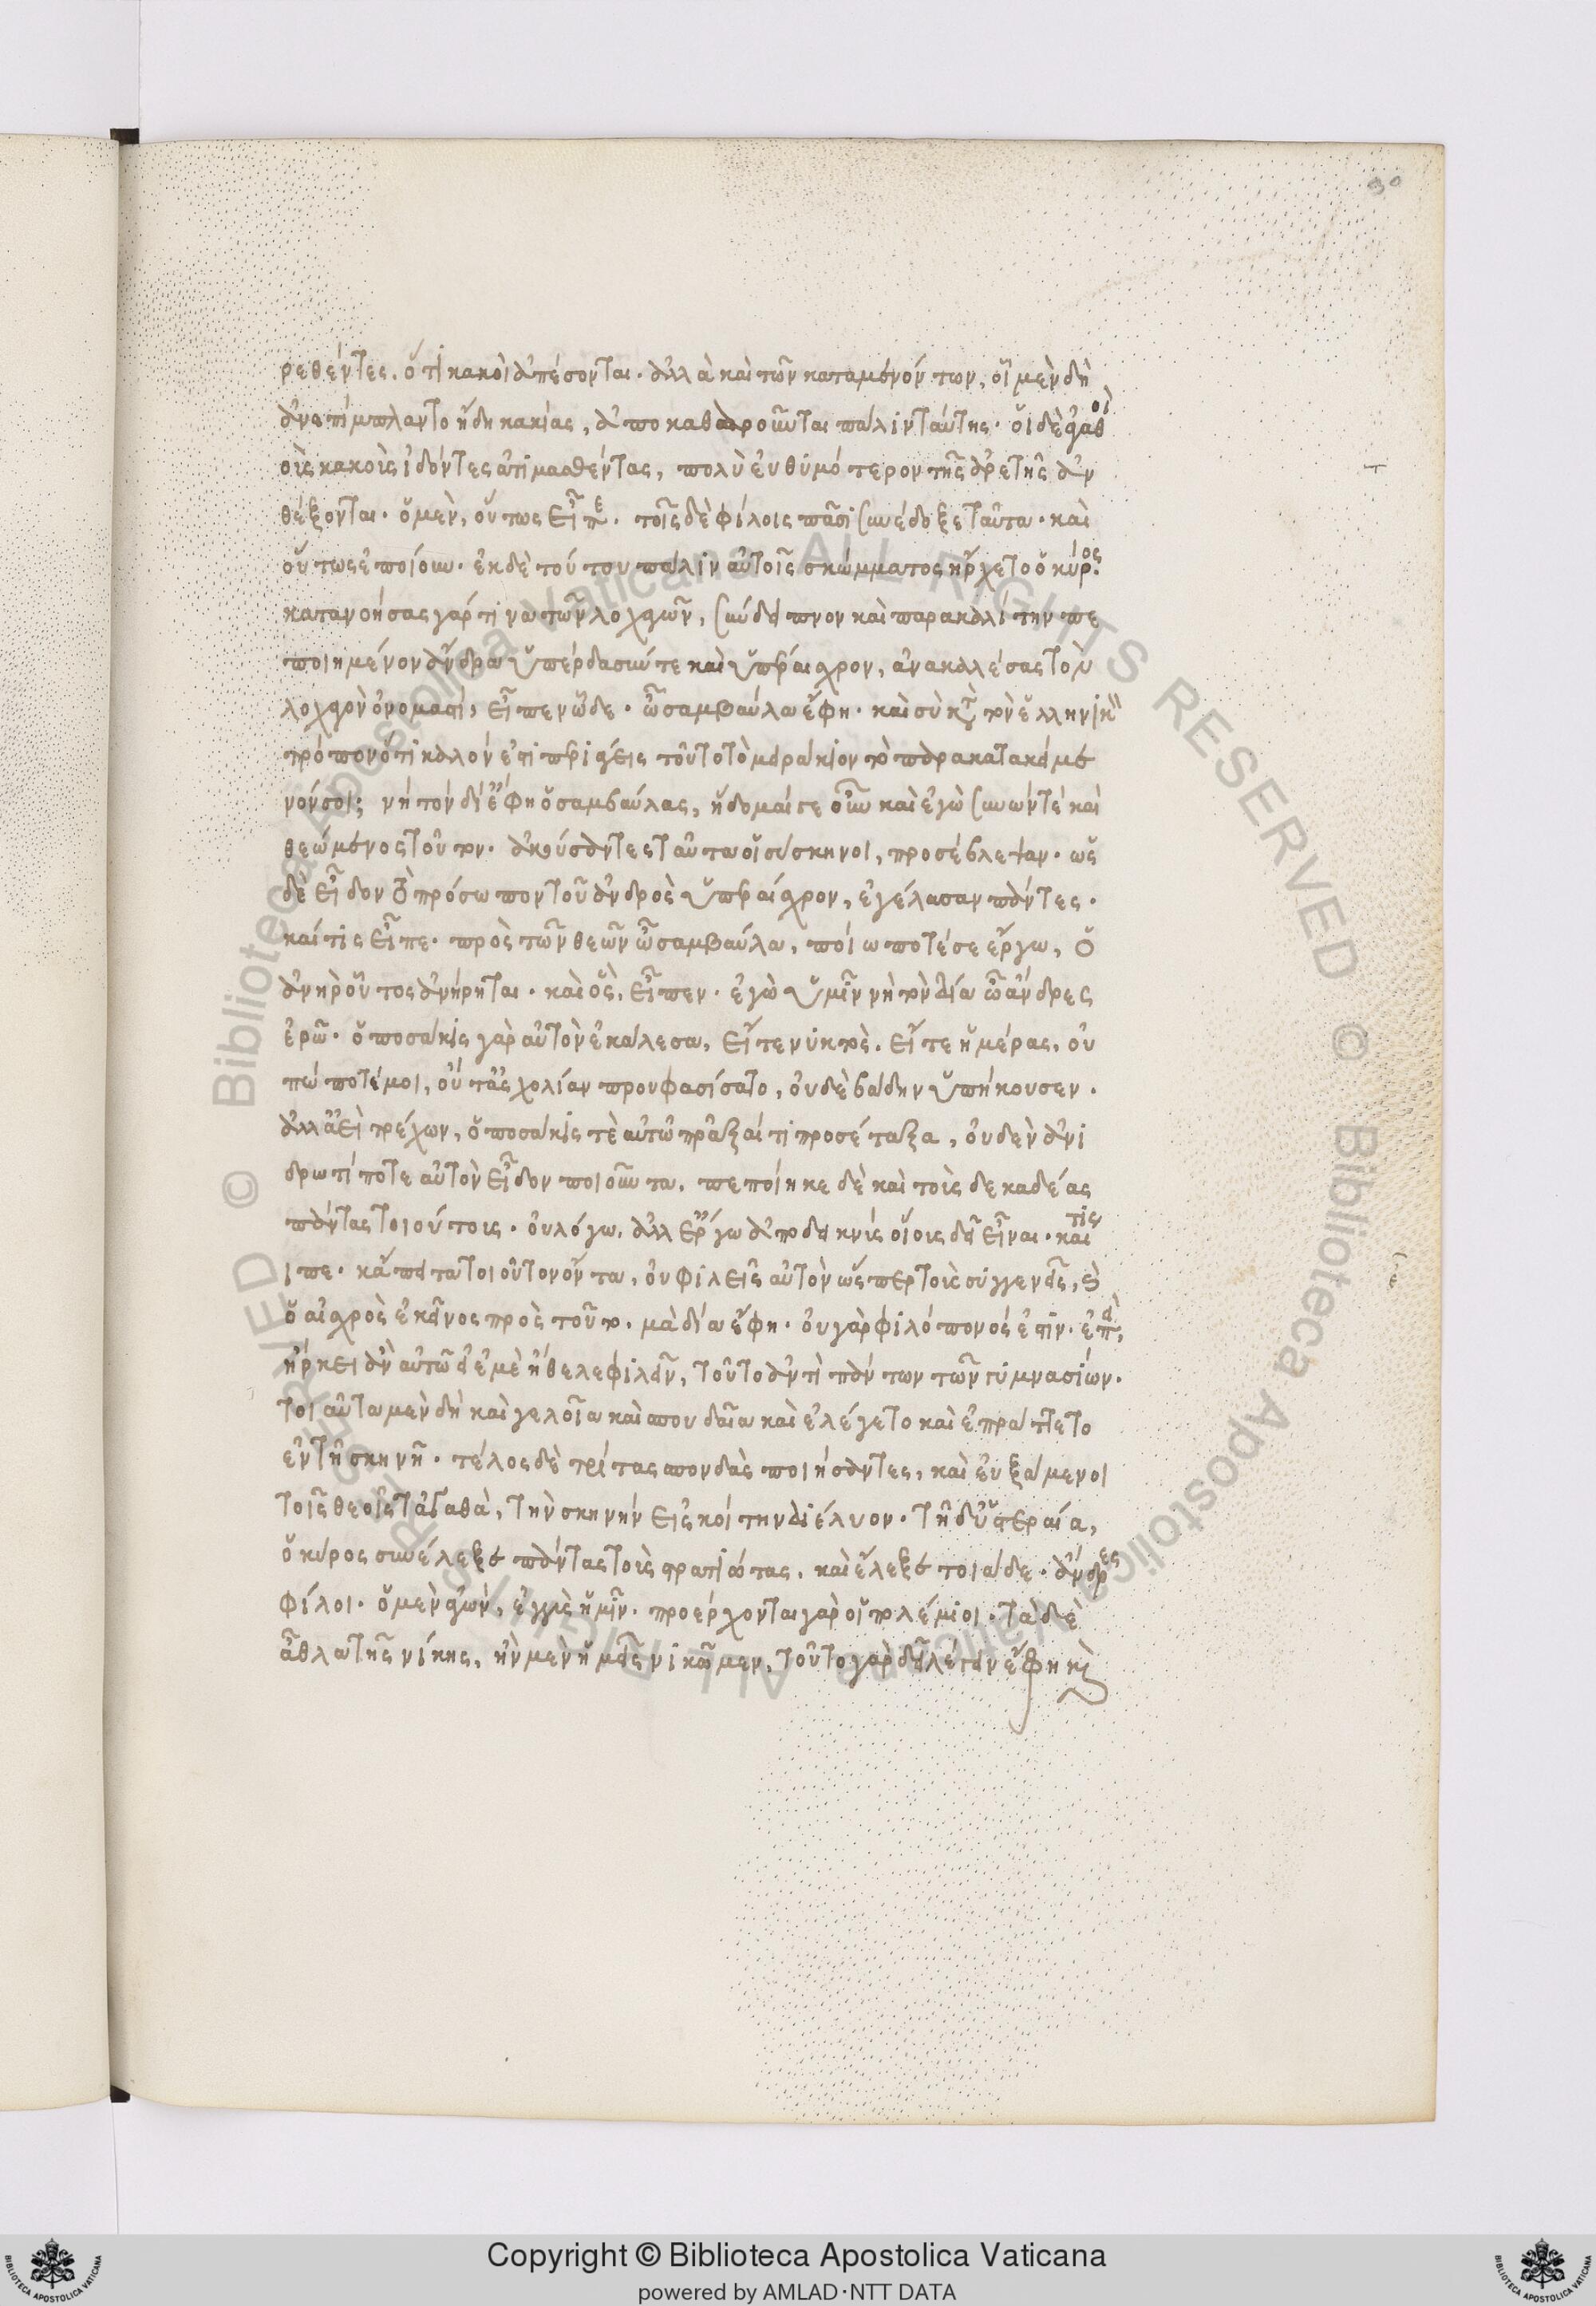 30
ρεθέντες. ὅτι κακοὶ ἀπέσονται· ἀλλὰ καὶ τῶν καταμενόντων, οἳ μὲν δὴ
ἀνεπίμπλαντο ἤδη κακίας, ἀποκαθαροῦνται πάλιν ταύτης· οἱ δὲ ἀγαθοὶ
τοὺς κακοὺς ἰδόντες ἀτιμασθέντας, πολὺ εὐθυμότερον τῆς ἀρετῆς ἀν
θέξονται· ὁ μὲν, οὕτως εἶπε. τοῖς δὲ φίλοις πᾶσι συνέδοξε ταῦτα· καὶ
οὕτως ἐποίουν. ἐκ δὲ τούτου πάλιν αὐτοῖς σκώμματος ἤρχετο ὁ κύρος·
κατανοήσας γάρ τινα τῶν λοχαγῶν, σύνδειπνον καὶ παρακλίτην πε
ποιημένον ἄνδρα ὑπέρδασύν τε καὶ ὑπέραισχρον, ἀνακαλέσας τὸν
λοχαγὸν ὀνομαστί, εἶπεν ὧδε· ὦ σαμβαύλα ἔφη· καὶ σὺ κατὰ τὸν ἑλληνικὸν
τρόπον ὅτι καλόν ἐστι περιάγεις τοῦτο τὸ μειράκιον τὸ παρακατακείμε
νόν σοι; νὴ τὸν δί' ἔφη ὁ σαμβαύλας, ἥδομαί γε οὖν καὶ ἐγὼ συνών τέ καὶ
θεώμενος τοῦτον. ἀκούσαντες ταῦτα οἱ σύσκηνοι, προσέβλεψαν· ὡς
δὲ εἶδον τὸ πρόσωπον τοῦ ἀνδρὸς ὑπέραισχρον, ἐγέλασαν πάντες·
καί τις εἶπε· πρὸς τῶν θεῶν ὦ σαμβαύλα, ποίω ποτέ σε ἔργω, ὁ
ἀνὴρ οὗτος ἀνήρηται· καὶ ὃς, εἶπεν· ἐγὼ ὑμῖν νὴ τὸν δία ὦ ἄνδρες
ἐρῶ· ὁποσάκις γὰρ αὐτὸν ἐκάλεσα, εἴτε νυκτὸς. εἴτε ἡμέρας, οὐ
πώποτέ μοι, οὔτ' ἀσχολίαν προυφασίσατο, οὐδὲ βάδην ὑπήκουσεν·
ἀλλ' ἀεὶ τρέχων, ὁποσάκις τὲ αὐτῷ πρᾶξαί τι προσέταξα, οὐδὲν ἀνι
δρωτί ποτε αὐτὸν εἶδον ποιοῦντα. πεποίηκε δὲ καὶ τοὺς δεκαδέας
πάντας τοιούτους· οὐ λόγω, ἀλλ' ἔργω ἀποδεικνὺς οἵους δεῖ εἶναι· καί τις
ιπε· κἄπειτα τοιοῦτον ὄντα, οὐ φιλεῖς αὐτὸν ὥσπερ τοὺς συγγενεῖς, καὶ
ὁ αἰσχρὸς ἐκεῖνος πρὸς τοῦτο. μὰ δία ἔφη· οὐ γὰρ φιλόπονός ἐστιν· ἐπεὶ,
ἤρκει ἂν αὐτῷ εἰ ἐμὲ ἤθελε φιλεῖν, τοῦτο ἀντὶ πάντων τῶν γυμνασίων·
τοιαῦτα μὲν δὴ καὶ γελοῖα καὶ σπουδαῖα καὶ ἐλέγετο καὶ ἐπράττετο
ἐν τῇ σκηνῇ· τέλος δὲ τρίτας σπονδὰς ποιήσαντες, καὶ εὐξάμενοι
τοῖς θεοῖς τἀγαθὰ, τὴν σκηνήν εἰς κοίτην διέλυον· τῇ δ' ὑστεραία,
ὁ κύρος συνέλεξε πάντας τοὺς στρατιώτας. καὶ ἔλεξε τοιάδε· ἄνδρες
φίλοι· ὁ μὲν ἀγών, ἐγγὺς ἡμῖν· προσέρχονται γὰρ οἱ πολέμιοι· τὰ δὲ
ἆθλα τῆς νίκης, ἢν μὲν ἡμεῖς νικῶμεν, τοῦτο γὰρ δεῖ λέγειν ἔφη καὶ
Copyright © Biblioteca Apostolica Vaticana
powered by AMLAD·NTT DATA